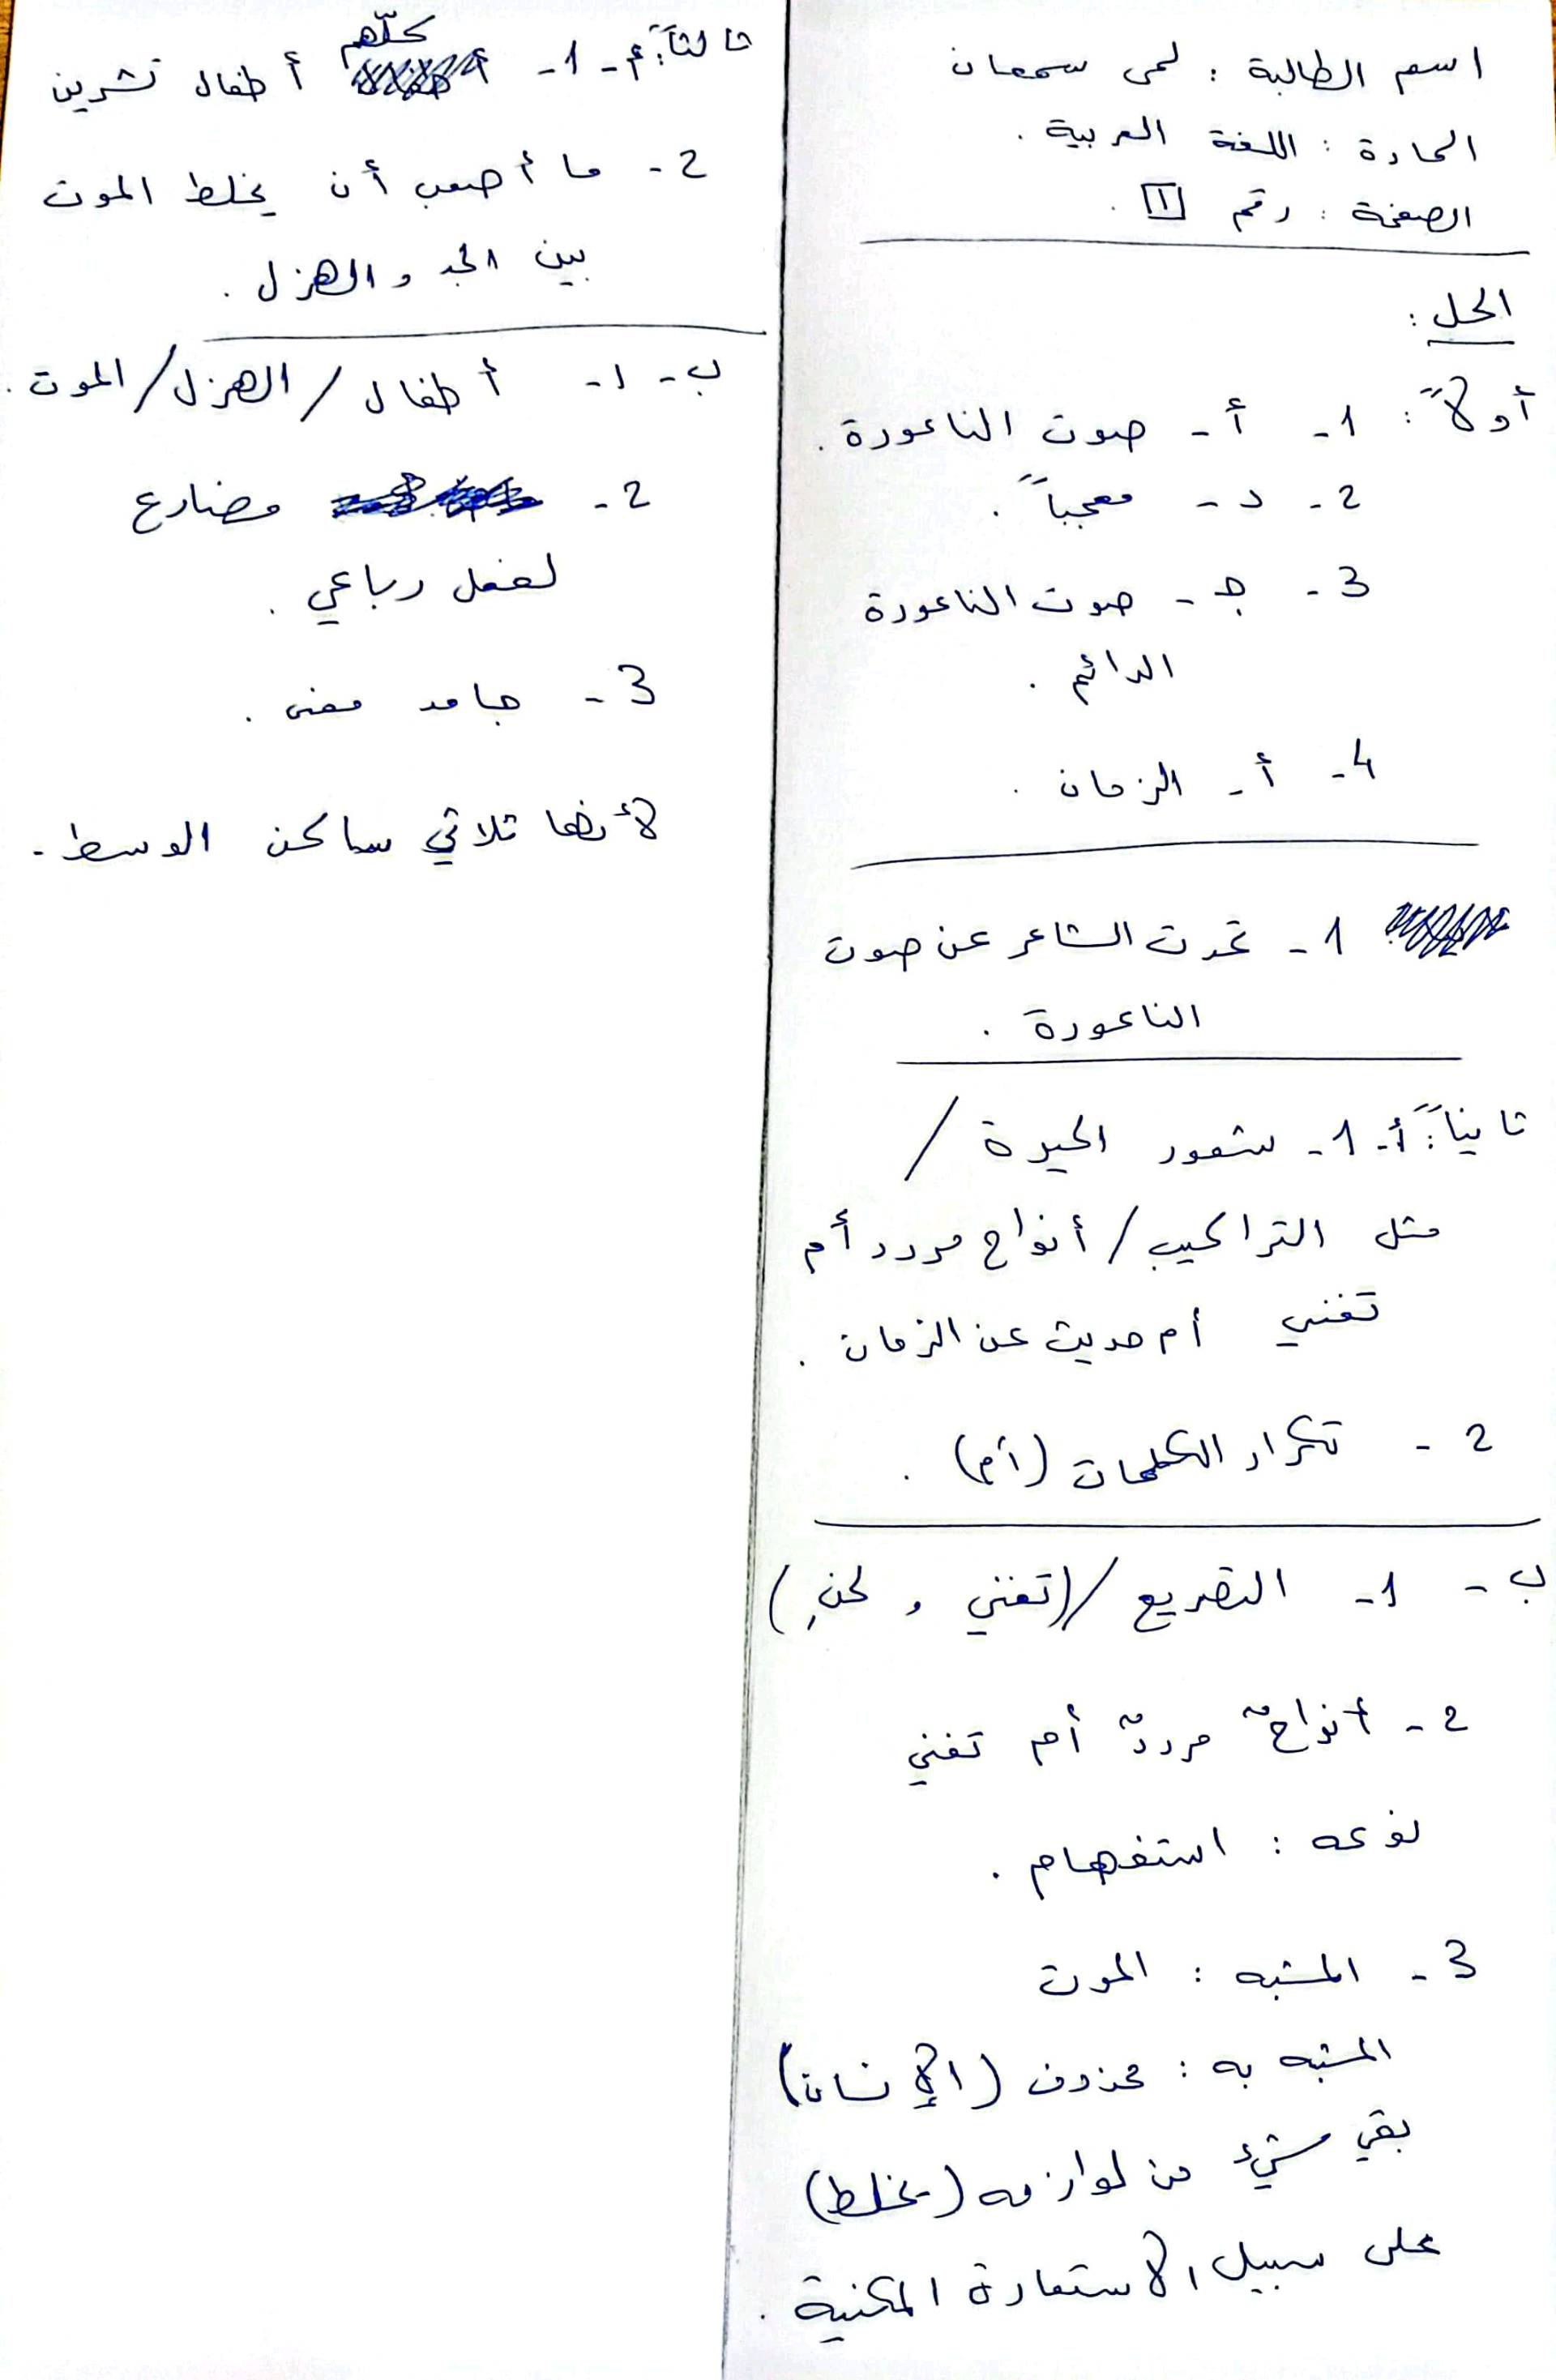 اسم الطالبة : لمى سمعان
المادة : اللغة العربية .
الصفحة : رقم 1 .
الحل :
أولاً : 1- أ- صوت الناعورة .
2- د- معجباً .
3- جـ- صوت الناعورة
الدائم .
4- أ- الزمان .
1- تحدث الشاعر عن صوت
الناعورة .
ثانياً: أ- 1- شعور الحيرة /
مثل التراكيب / أنواح مردد أم
تغني أم حديث عن الزمان .
2- تكرار الكلمات (أم) .
ب- 1- التصريع / (تغني و لحنِ)
2- أنواحٌ مرددٌ أم تغني
نوعه : استفهام .
3- المشبه : الموت
المشبه به : محذوف (الإنسان)
بقي شيء من لوازمه (يخلط)
على سبيل الاستعارة المكنية .
ثالثاً: أ- 1- أطفال تشرين كلّهم
2- ما أصعب أن يخلط الموت
بين الجد والهزل .
ب- 1- أطفال / الهزل / الموت .
2- مضارع
لفعل رباعي .
3- جامد معنى .
لأنها ثلاثي ساكن الوسط .